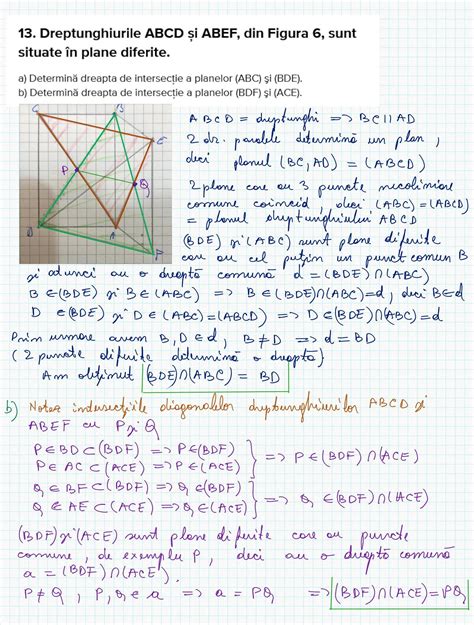 13. Dreptunghiurile ABCD și ABEF, din Figura 6, sunt
situate în plane diferite.
a) Determină dreapta de intersecție a planelor (ABC) şi (BDE).
b) Determină dreapta de intersecție a planelor (BDF) şi (ACE).
C B E P Q D A F
ABCD = dreptunghi => BC||AD
2 dr. paralele determină un plan,
deci planul (BC, AD) = (ABCD)
2 plane care au 3 puncte necoliniare
comune coincid, deci (ABC)=(ABCD)
= planul dreptunghiului ABCD
(BDE) și (ABC) sunt plane diferite
care au cel puțin un punct comun B
și atunci au o dreaptă comună d = (BDE)∩(ABC)
B∈(BDE) și B∈(ABC) => B∈(BDE)∩(ABC)=d, deci B∈d
D ∈(BDE) și D∈(ABC)=(ABCD) => D∈(BDE)∩(ABC)=d
Prin urmare avem B, D∈d, B≠D => d = BD
(2 puncte diferite determină o dreaptă)
Am obținut (BDE)∩(ABC) = BD
b) Notez intersecțiile diagonalelor dreptunghiurilor ABCD și
ABEF cu P și Q
P∈BD⊂(BDF) => P∈(BDF)
P∈AC⊂(ACE) => P∈(ACE) => P∈(BDF)∩(ACE)
Q∈BF⊂(BDF) => Q∈(BDF)
Q∈AE⊂(ACE) => Q∈(ACE) => Q∈(BDF)∩(ACE)
(BDF) și (ACE) sunt plane diferite care au puncte
comune, de exemplu P, deci au o dreaptă comună
a = (BDF)∩(ACE).
P≠Q, P,Q∈a => a = PQ => (BDF)∩(ACE)=PQ